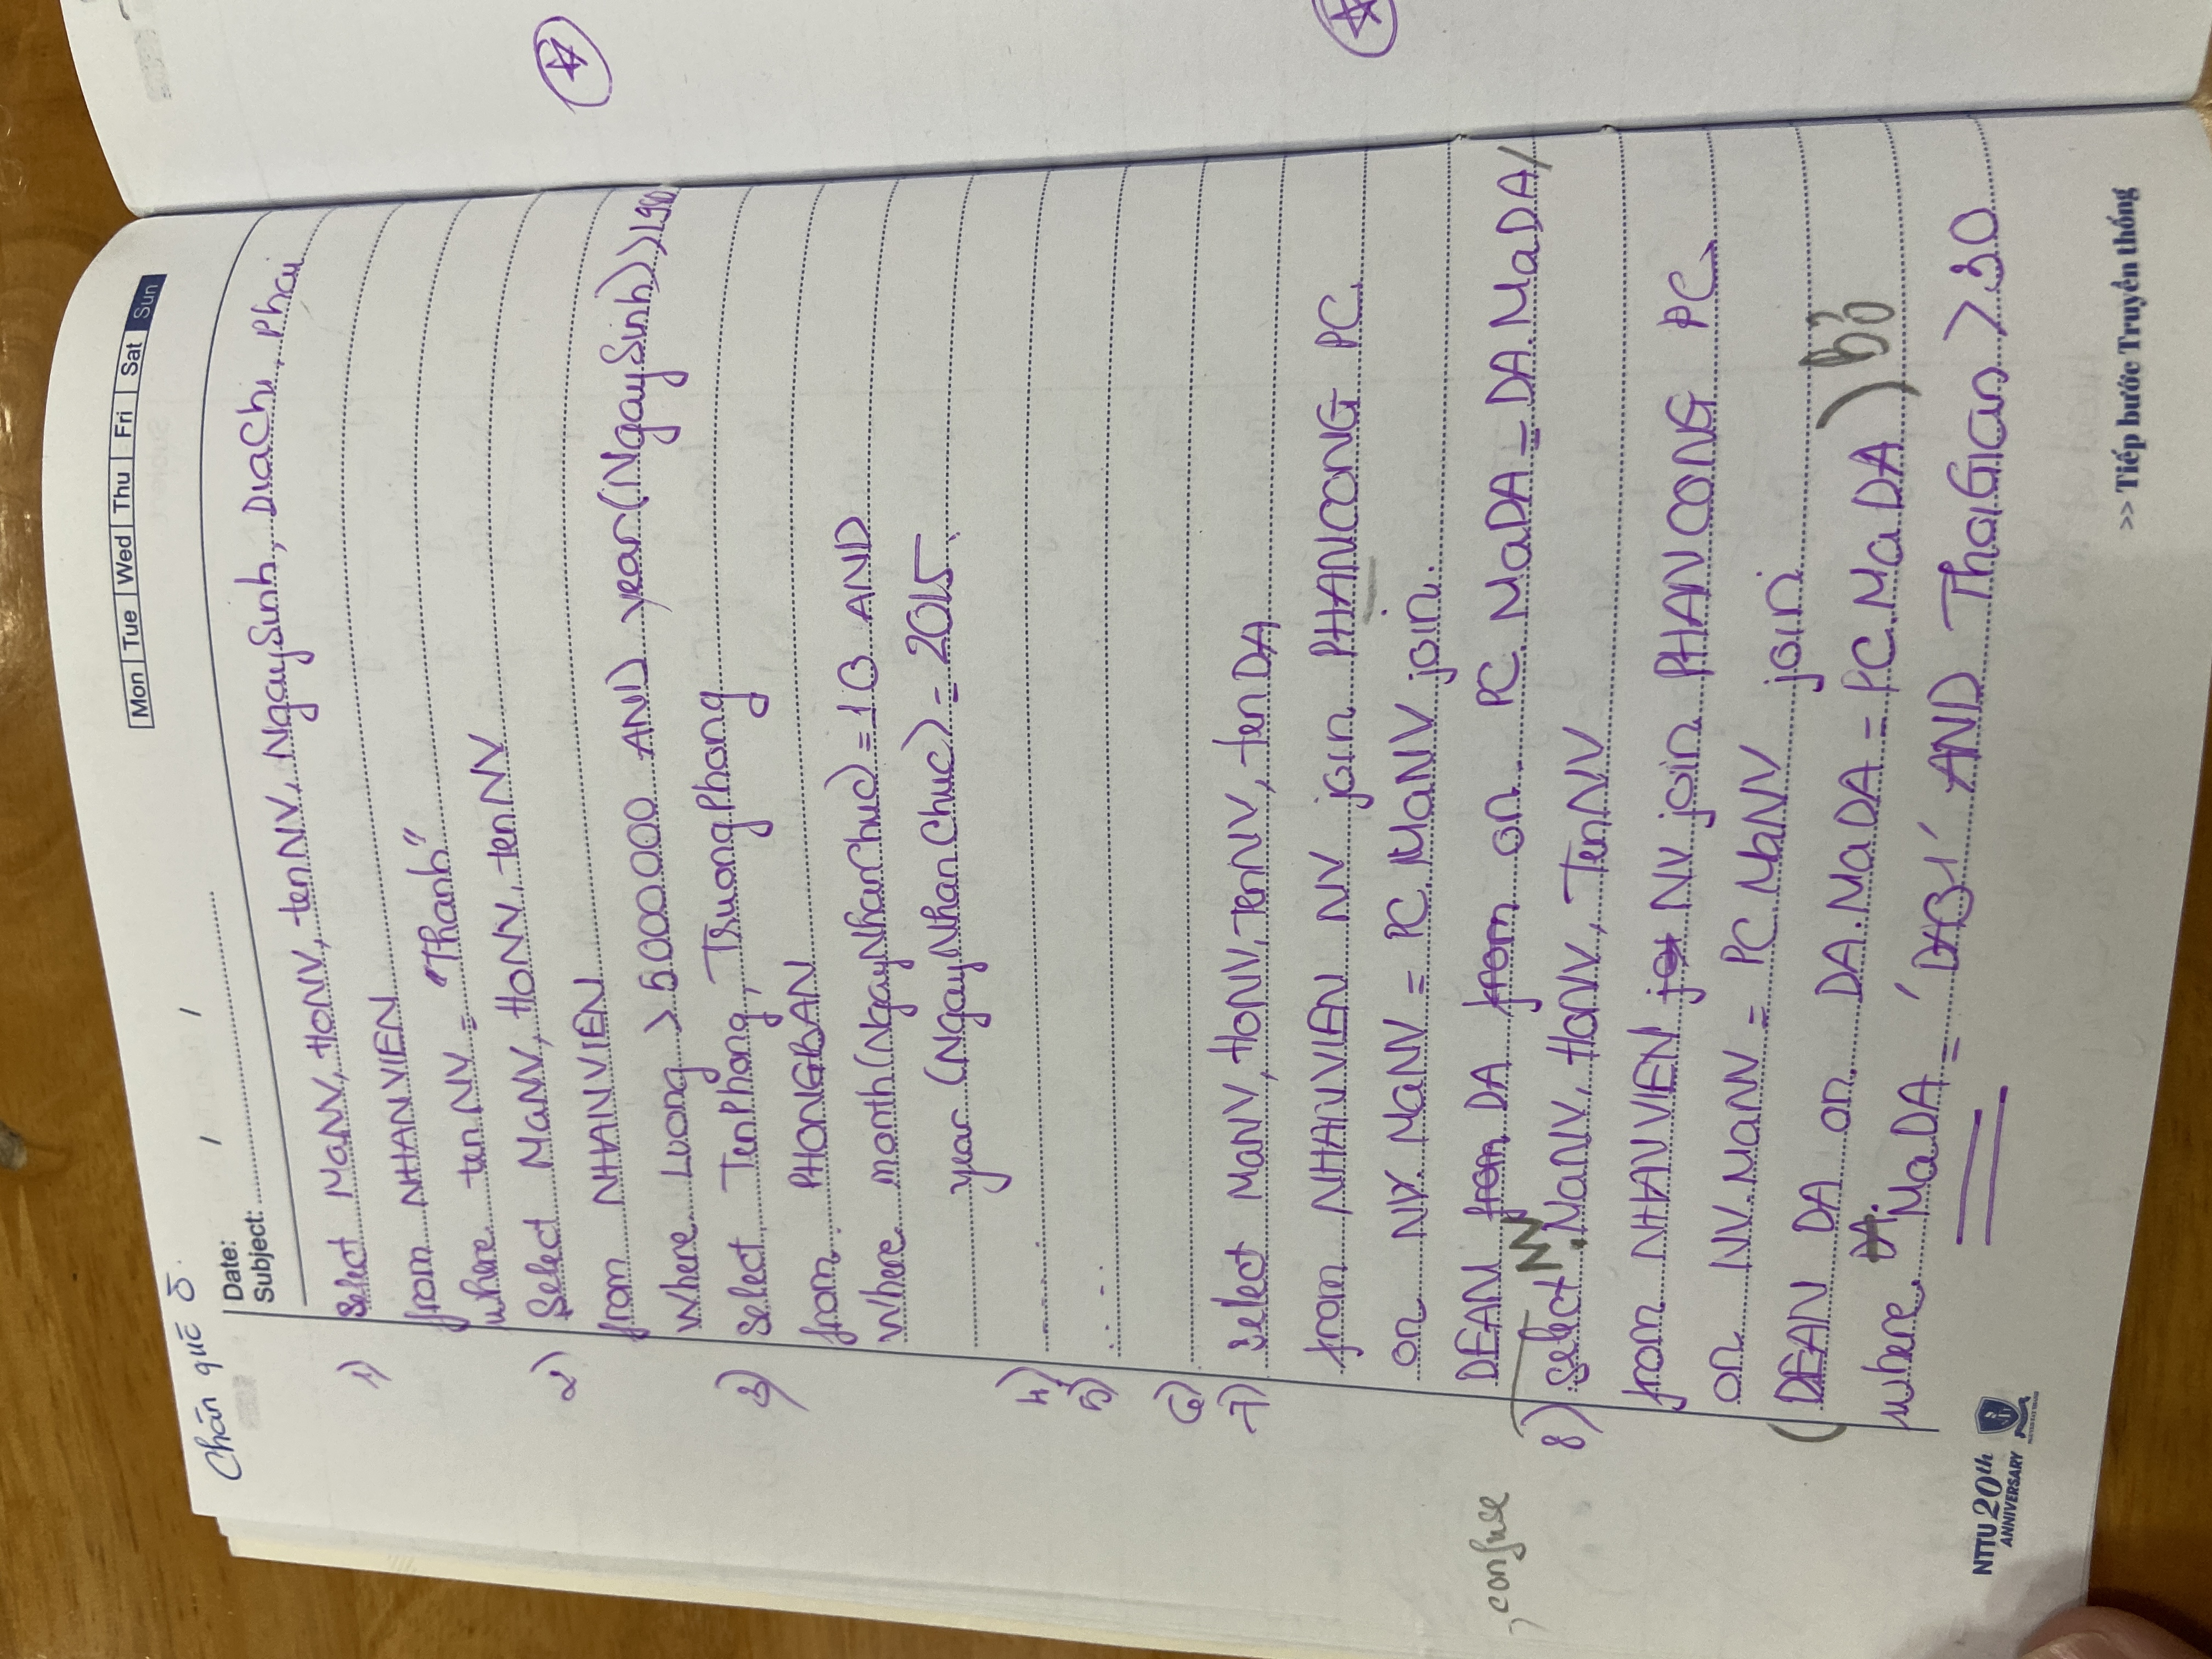 Mon Tue Wed Thu Fri Sat Sun
Chán quá ō.
Date: / /
Subject:
1) Select MaNV, HoNV, tenNV, NgaySinh, DiaChi, Phai
from NHANVIEN
where tenNV = "Thanh"
2) Select MaNV, HoNV, tenNV
from NHANVIEN
Where Luong > 5000000 AND year(NgaySinh) > 1980
3) Select TenPhong, TruongPhong
from PHONGBAN
Where month(NgayNhanChuc) = 10 AND
year (NgayNhanChuc) = 2015.
4) .....
5) ....
6)
7) select MaNV, HoNV, TenNV, tenDA
from NHANVIEN NV join PHANCONG PC
on NV.MaNV = PC.MaNV join.
DEAN from DA from on PC.MaDA = DA.MaDA/
, confuse
8) select MaNV, HoNV, TenNV
from NHANVIEN NV join PHANCONG PC
on NV.MaNV = PC.MaNV join
(DEAN DA on DA.MaDA = PC.MaDA) Bỏ
where DA. MaDA = 'DAB1' AND ThoiGian > 30
NTTU 20th
ANNIVERSARY
>> Tiếp bước Truyền thống